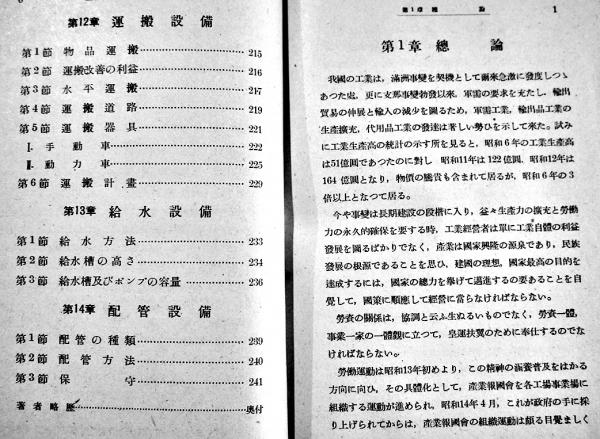 第12章 運搬設備
第1節 物品運搬 215
第2節 運搬改善の利益 216
第3節 水平運搬 217
第4節 運搬道路 219
第5節 運搬器具 221
I. 手動車 222
II. 動力車 225
第6節 運搬計畫 229
第13章 給水設備
第1節 給水方法 233
第2節 給水槽の高さ 234
第3節 給水槽及びポンプの容量 236
第14章 配管設備
第1節 配管の種類 239
第2節 配管方法 240
第3節 保守 241
著者略歴 奥付
第1章 總論 1
第1章 總論
我國の工業は，滿洲事變を契機として爾來急激に發度しつゝ
あつた處，更に支那事變勃發以來，軍需の要求を充たし，輸出
貿易の伸展と輸入の減少を圖るため，軍需工業，輸出品工業の
生產擴充，代用品工業の發達は著しい勢ひを示して來た。試み
に工業生產高の統計の示す所を見ると，昭和6年の工業生產高
は51億圓であつたのに對し 昭和11年は122億圓，昭和12年は
164億圓となり，物價の騰貴も含まれて居るが，昭和6年の3
倍以上となつて居る。
今や事變は長期建設の段楷に入り，益々生產力の擴充と勞働
力の永久的確保を要する時，工業經營者は單に工業自體の利益
發展を圖るばかりでなく，產業は國家興隆の源泉であり，民族
發展の根源であることを思ひ，建國の理想，國家最高の目的を
達成するには，國家の總力を擧げて邁進するの要あることを自
覺して，國策に順應して經營に當らなければならない。
勞資の關係は，協調と云ふ生ぬるいものでなく，勞資一體，
事業一家の一體觀に立つて，皇運扶翼のために奉仕するのでな
ければならない。
勞働運動は昭和13年初めより，この精神の涵養普及をはかる
方向に向ひ，その具體化として，產業報國會を各工場事業場に
組織する運動が進められ，昭和14年4月，これが政府の手に採
り上げられてからは，產業報國會の組織運動は頗る目覺ましく